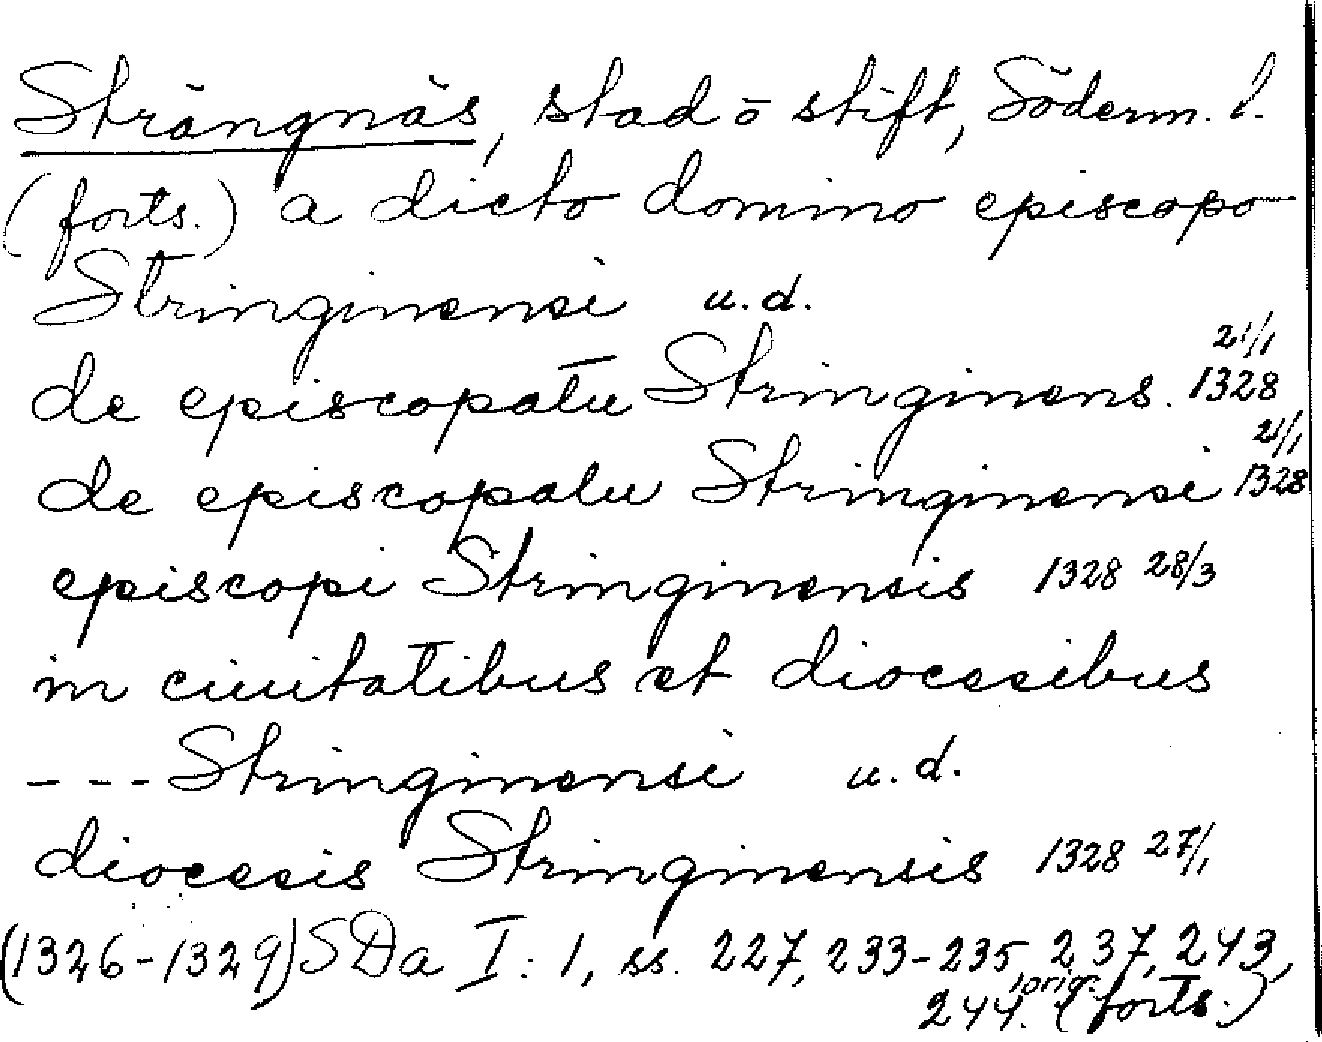 Strängnäs, stad o stift, Söderm. l.
(forts.) a dicto domino episcopo
Stringinensi u.d.
de episcopatu Stringinens. 1328 21/1
de episcopatu Stringinensi 1328 21/1
episcopi Stringinensis 1328 28/3
in ciuitatibus et diocesibus
--- Stringinensi u.d.
diocesis Stringinensis 1328 27/1
(1326-1329) SDa I:1, ss. 227, 233-235, 237, 243,
244. (forts.)